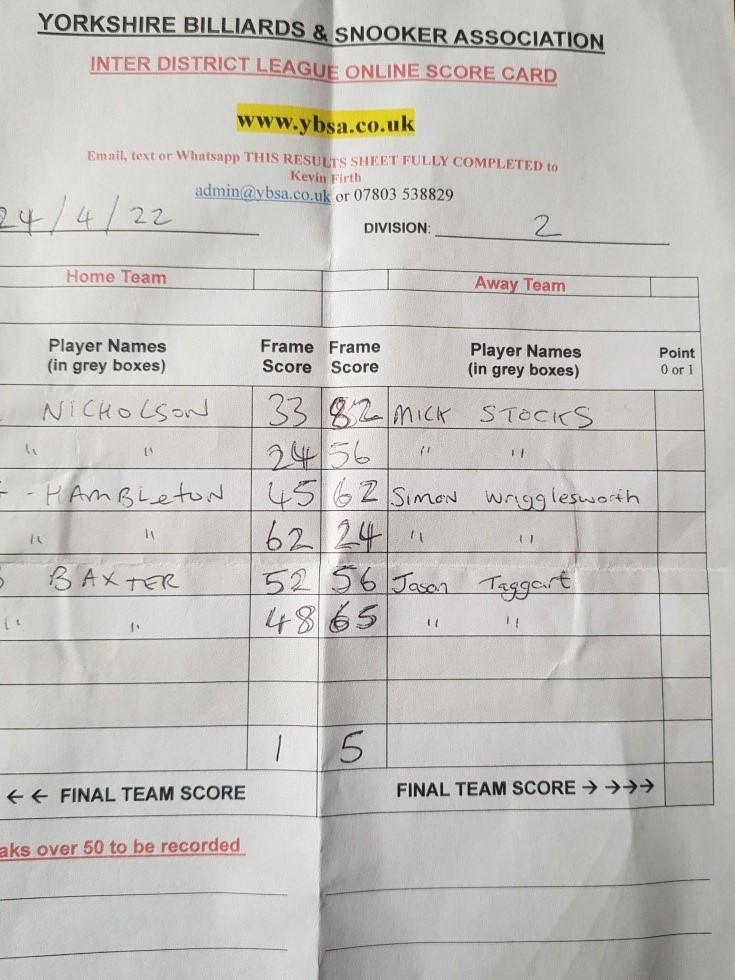 YORKSHIRE BILLIARDS & SNOOKER ASSOCIATION
INTER DISTRICT LEAGUE ONLINE SCORE CARD
www.ybsa.co.uk
Email, text or Whatsapp THIS RESULTS SHEET FULLY COMPLETED to
Kevin Firth
admin@ybsa.co.uk or 07803 538829
24/4/22 DIVISION: 2
Home Team Away Team
Player Names Frame Frame Player Names Point
(in grey boxes) Score Score (in grey boxes) 0 or 1
NICHOLSON 33 82 MICK STOCKS
" " 24 56 " "
- HAMBLETON 45 62 SIMON Wrigglesworth
" " 62 24 " "
BAXTER 52 56 Jason Taggart
" " 48 65 " "
1 5
← ← FINAL TEAM SCORE FINAL TEAM SCORE → →→→
aks over 50 to be recorded